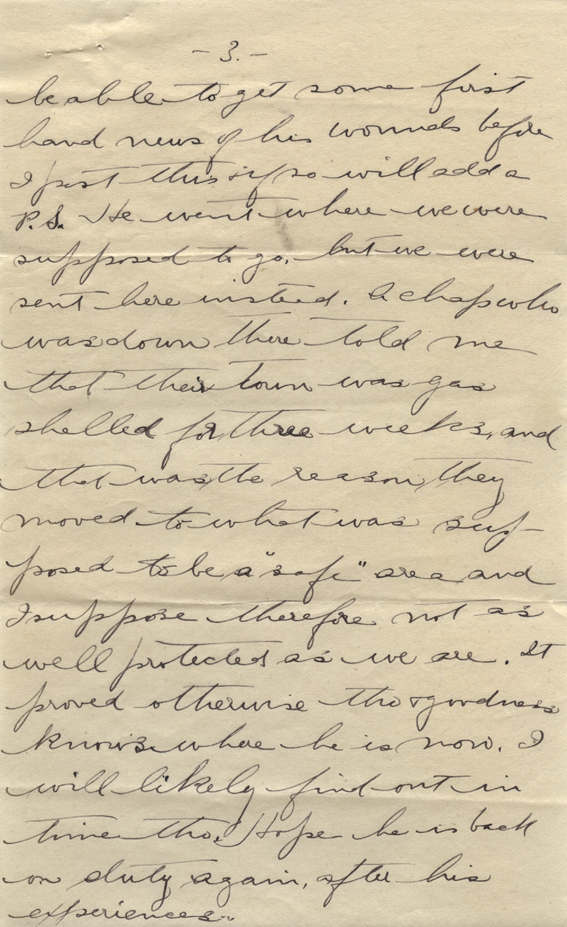 - 3. -
be able to get some first
hand news of his wounds before
I post this & if so will add a
P.S. He went where we were
supposed to go, but we were
sent here instead. A chap who
was down there told me
that their town was gas
shelled for three weeks, and
that was the reason they
moved to what was sup-
posed to be a "safe" area and
I suppose therefore not as
well protected as we are. It
proved otherwise tho & goodness
knows where he is now. I
will likely find out in
time tho. Hope he is back
on duty again, after his
experiences.